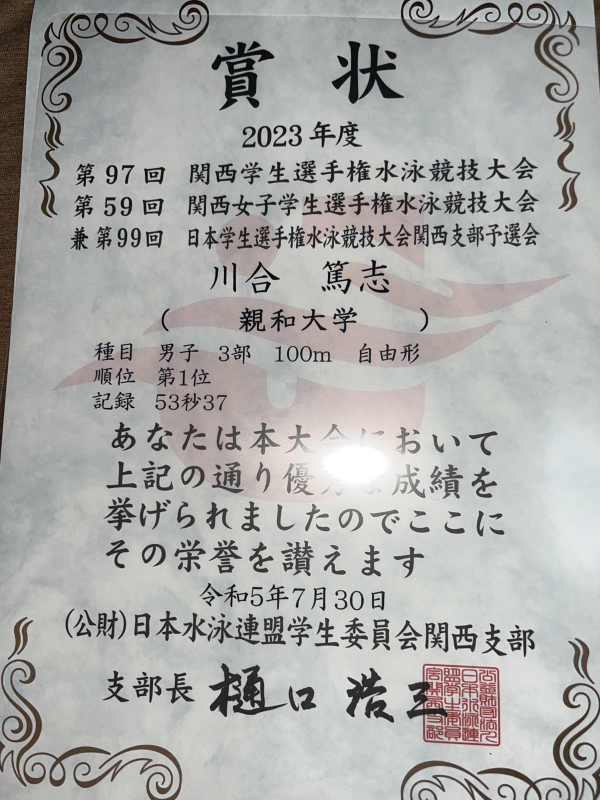 賞 状
2023年度
第97回 関西学生選手権水泳競技大会
第59回 関西女子学生選手権水泳競技大会
兼 第99回 日本学生選手権水泳競技大会関西支部予選会
川合 篤志
( 親和大学 )
種目 男子 3部 100m 自由形
順位 第1位
記録 53秒37
あなたは本大会において
上記の通り優秀な成績を
挙げられましたのでここに
その栄誉を讃えます
令和5年7月30日
(公財)日本水泳連盟学生委員会関西支部
支部長 樋口 浩三